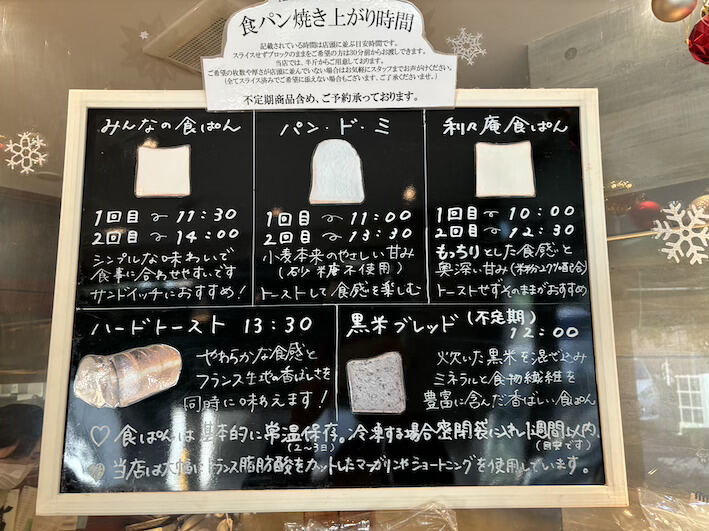 食パン焼き上がり時間
記載されている時間は店頭に並ぶ目安時間です。
スライスせずブロックのままをご希望の方は30分前からお渡しできます。
当店では、半斤からご用意しております。
ご希望の枚数や厚さが店頭に並んでいない場合はお気軽にスタッフまでお声がけください。
(全てスライス済みでご希望に添えない場合もございます、ご了承くださいませ。)
不定期商品含め、ご予約承っております。
みんなの食ぱん
1回目〜11:30
2回目〜14:00
シンプルな味わいで
食事に合わせやすいです
サンドイッチにおすすめ!
パン・ド・ミ
1回目〜11:00
2回目〜13:00
小麦本来のやさしい甘み
(砂糖不使用)
トーストして食感を楽しむ
利々庵食ぱん
1回目〜10:00
2回目〜12:30
もっちりとした食感と
奥深い甘み(米粉配合)
トーストせずそのままがおすすめ
ハードトースト 13:30
やわらかな食感と
フランス生地の香ばしさを
同時に味わえます!
黒米ブレッド(不定期)
12:00
炊いた黒米を混ぜ込み
ミネラルと食物繊維を
豊富に含んだ香ばしい食ぱん
♡食ぱんは基本的に常温保存。冷凍する場合密閉袋に入れ1週間以内。
(2〜3日) (目安です)
当店はトランス脂肪酸をカットしたマーガリンやショートニングを使用しています。